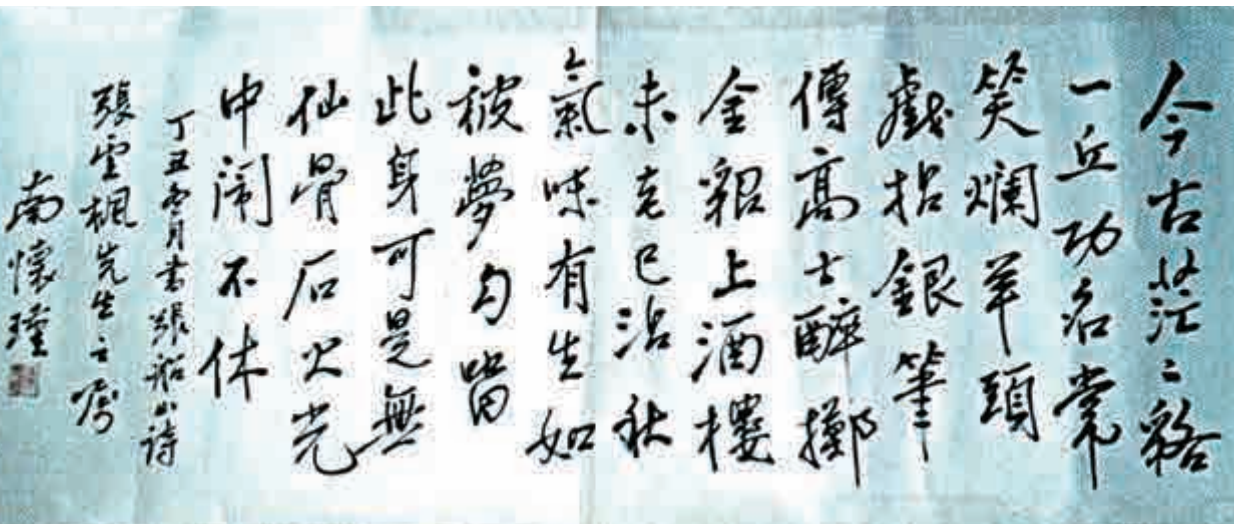 今古茫〻貉
一丘功名常
笑爛羊頭
戲拈銀筆
傳高士醉擲
金貂上酒樓
未老已沾秋
氣味有生如
被夢勾留
此身可是無
仙骨石火光
中鬧不休
丁丑冬月书張船山詩
張雲楓先生之嘱
南懷瑾